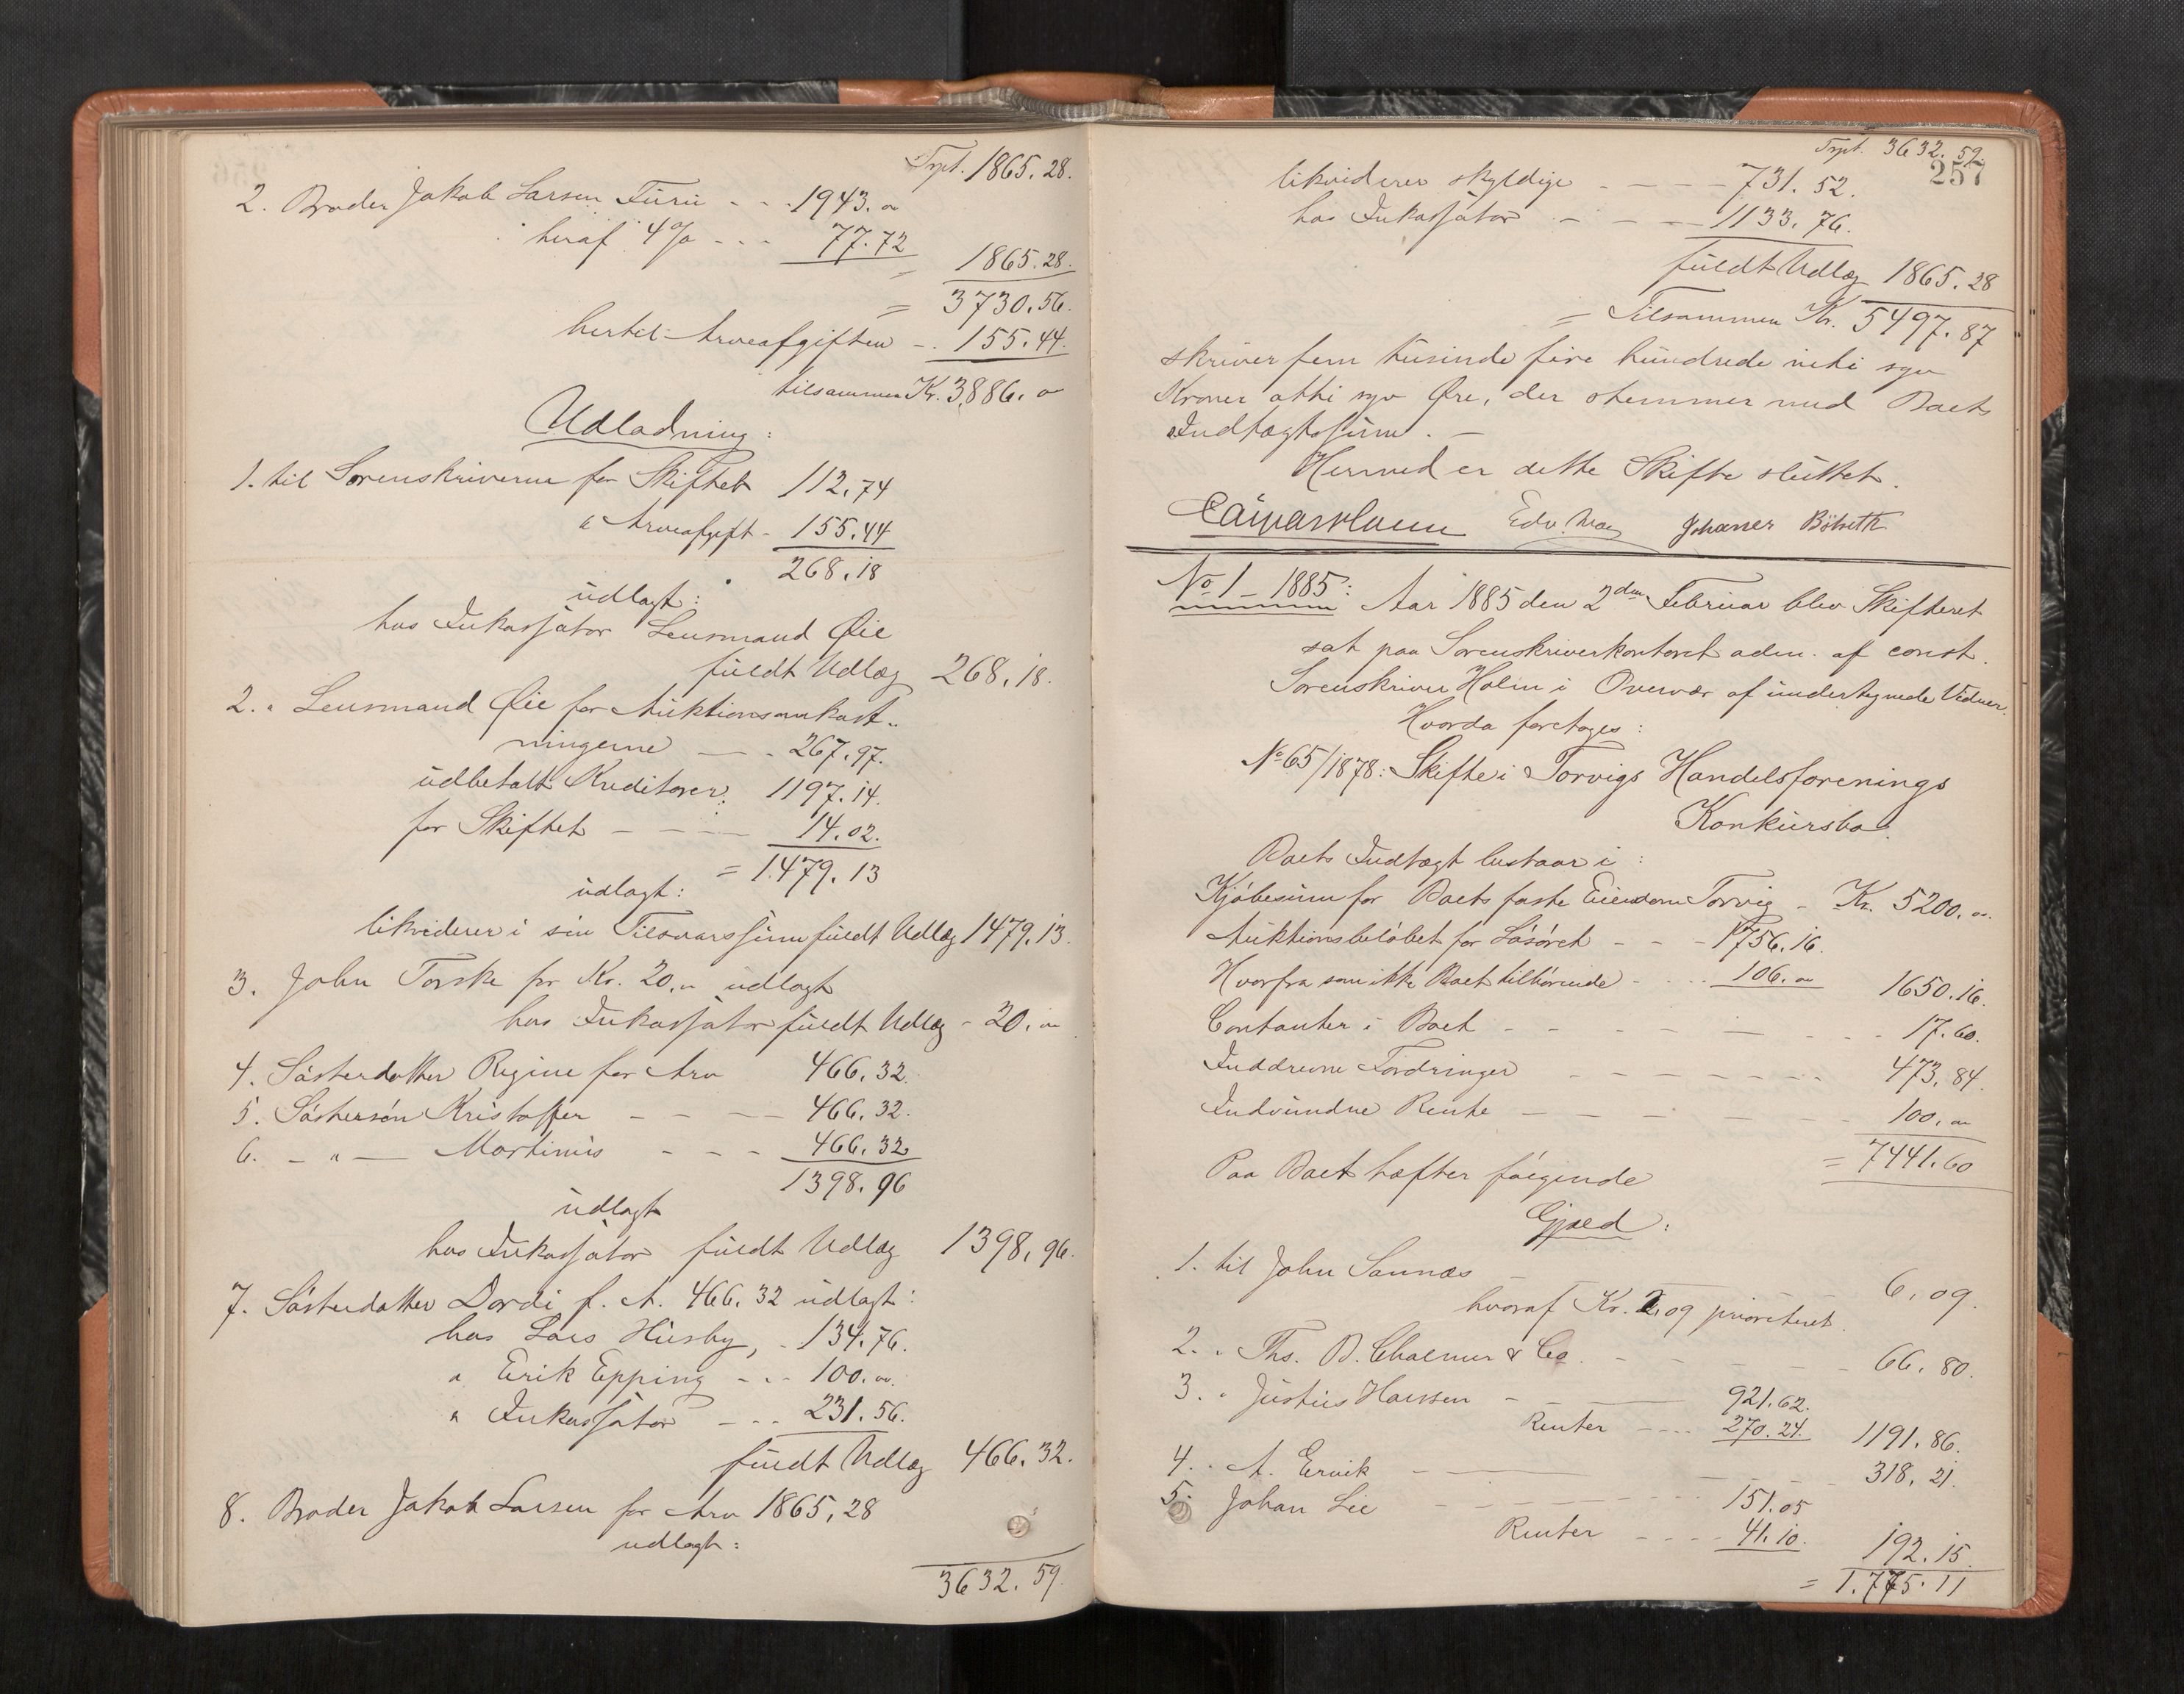 Trpt. 1865.28.
2. Broder Jakob Larsen Furu - - - 1943. "
heraf 4 % - - - 77.72
1865.28.
= 3730.56.
hertil Arveafgiften - . 155.44.
tilsammen Kr. 3886. "
Udlodning:
1. til Sorenskriveren for Skiftet 112.74
" Arveafgift - 155.44
268.18
udlagt:
hos Inkassator Lensmand Øie
fuldt Udlæg 268.18.
2. " Lensmand Øie for Auktionsomkost-
ningerne - - - 267.97.
udbetalt Kreditorer: 1197.14.
for Skiftet - - - 14.02.
= 1479.13
udlagt:
likviderer i sin Tilsvarssum fuldt Udlæg 1479.13.
3. John Torske for Kr. 20. " udlagt
hos Inkassator fuldt Udlæg - 20. "
4. Søsterdatter Regine for Arv 466.32.
5. Søstersøn Kristoffer - - - 466.32.
6. - " - Martinus - - - 466.32
1398.96
udlagt
hos Inkassator fuldt Udlæg 1398.96.
7. Søsterdatter Dordi f. A. 466.32 udlagt:
hos Lars Husby, - 134.76.
" Erik Epping - - - 100. "
" Inkassator - - - 231.56.
fuldt Udlæg 466.32.
8. Broder Jakob Larsen for Arv 1865,28
udlagt:
3632.59.
Trpt. 3632.59.
257
likviderer skyldige - - - - 731.52.
hos Inkassator - - - 1133.76.
fuldt Udlæg 1865.28
= Tilsammen Kr. 5497.87
skriver fem tusinde fire hundrede niti syv
Kroner otti syv Øre, der stemmer med Boets
Indtægtssum. -
Hermed er dette Skifte sluttet.
Edv. Johannes
No 1 - 1885: Aar 1885 den 2den Februar blev Skifteret
sat paa Sorenskriverkontoret adm. af const.
Sorenskriver Holm i Overvær af undertegnede Vidner.
Hvorda foretoges:
No 65/1878: Skifte i Torvigs Handelsforenings
Konkursbo.
Boets Indtægt bestaar i:
Kjøbesum for Boets faste Eiendom Torvig - Kr. 5200. "
Auktionsbeløbet for Løsøret - - - 1756.16.
Hvorfra som ikke Boet tilhørende - - - 106. " 1650.16.
Contanter i Boet - - - - - - 17.60.
Inddrevne Fordringer - - - - - - 473.84.
Indvundne Rente - - - - - - 100. "
= 7441.60
Paa Boet hæfter følgende
Gjæld:
1. til John Sannæs 6.09.
hvoraf Kr. 2.09 prioriteret.
2. " Ths. B. Chalmer & Co. - - - - - 66.80.
3. " Justus Hanssen - - - 921.62.
Renter - - - - 270.24. 1191.86.
4. " A. Ervik - - - - - - 318.21.
5. Johan Lie - - - - - - 151.05
Renter - - - - 41.10. 192.15.
= 1.775.11